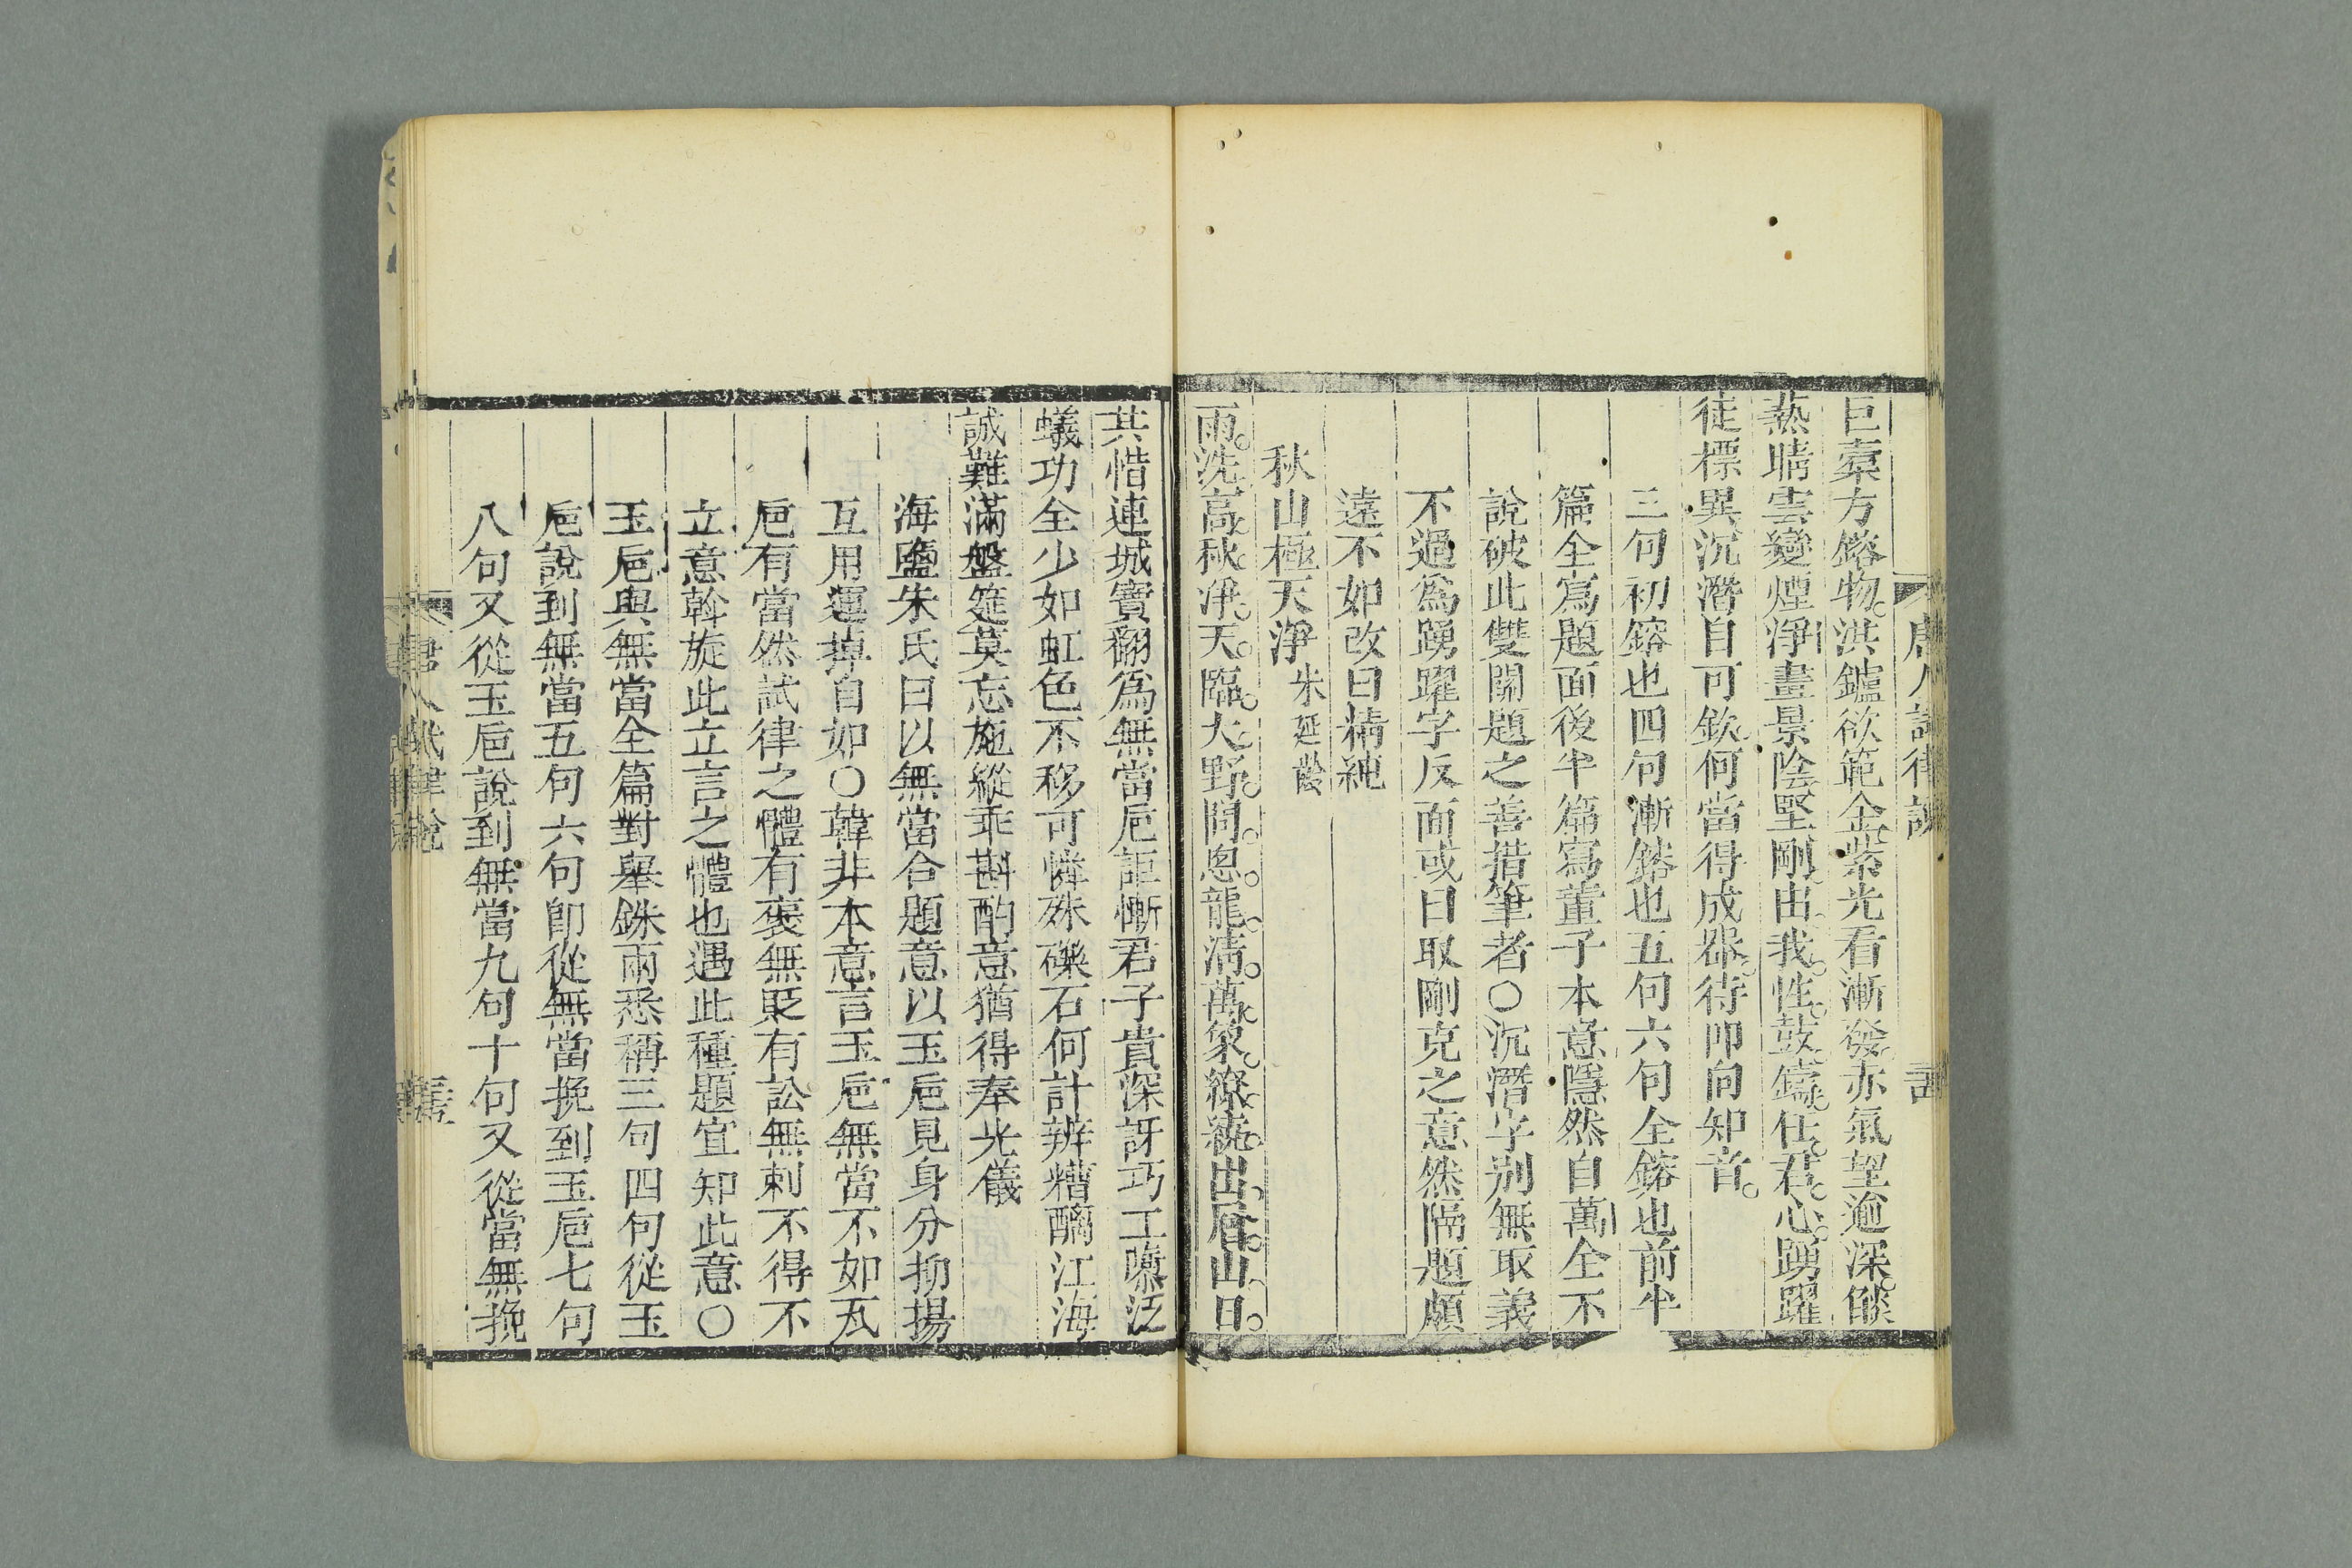 唐人試律說
巨橐方鎔物洪鑪欲範金紫光看漸發赤氣望逾深燄
熱晴雲變煙淨晝景陰堅剛由我性鼓鑄任君心踴躍
徒標異沉潛自可欽何當得成器待叩向知音
三句初鎔也四句漸鎔也五句六句全鎔也前半
篇全寫題面後半篇寫董子本意隱然自萬全不
說破此雙關題之善措筆者○沉潛字别無取義
不過爲踴躍字反面或曰取剛克之意然隔題頗
遠不如改曰精純
秋山極天淨 朱延齡
雨洗高秋淨天臨大野閒蔥蘢清萬象繚繞出層山日
共惜連城寶翻爲無當巵詎慚君子貴深訝巧工隳泛
蟻功全少如虹色不移可憐殊礫石何計辨糟醨江海
誠難滿盤筵莫忘施縱乖斟酌意猶得奉光儀
海鹽朱氏曰以無當合題意以玉巵見身分抑揚
互用運掉自如○韓非本意言玉巵無當不如瓦
巵有當然試律之體有褒無貶有訟無刺不得不
立意斡旋此立言之體也遇此種題宜知此意○
玉巵與無當全篇對舉銖兩悉稱三句四句從玉
巵說到無當五句六句卽從無當挽到玉巵七句
八句又從玉巵說到無當九句十句又從當無挽
唐人試律說